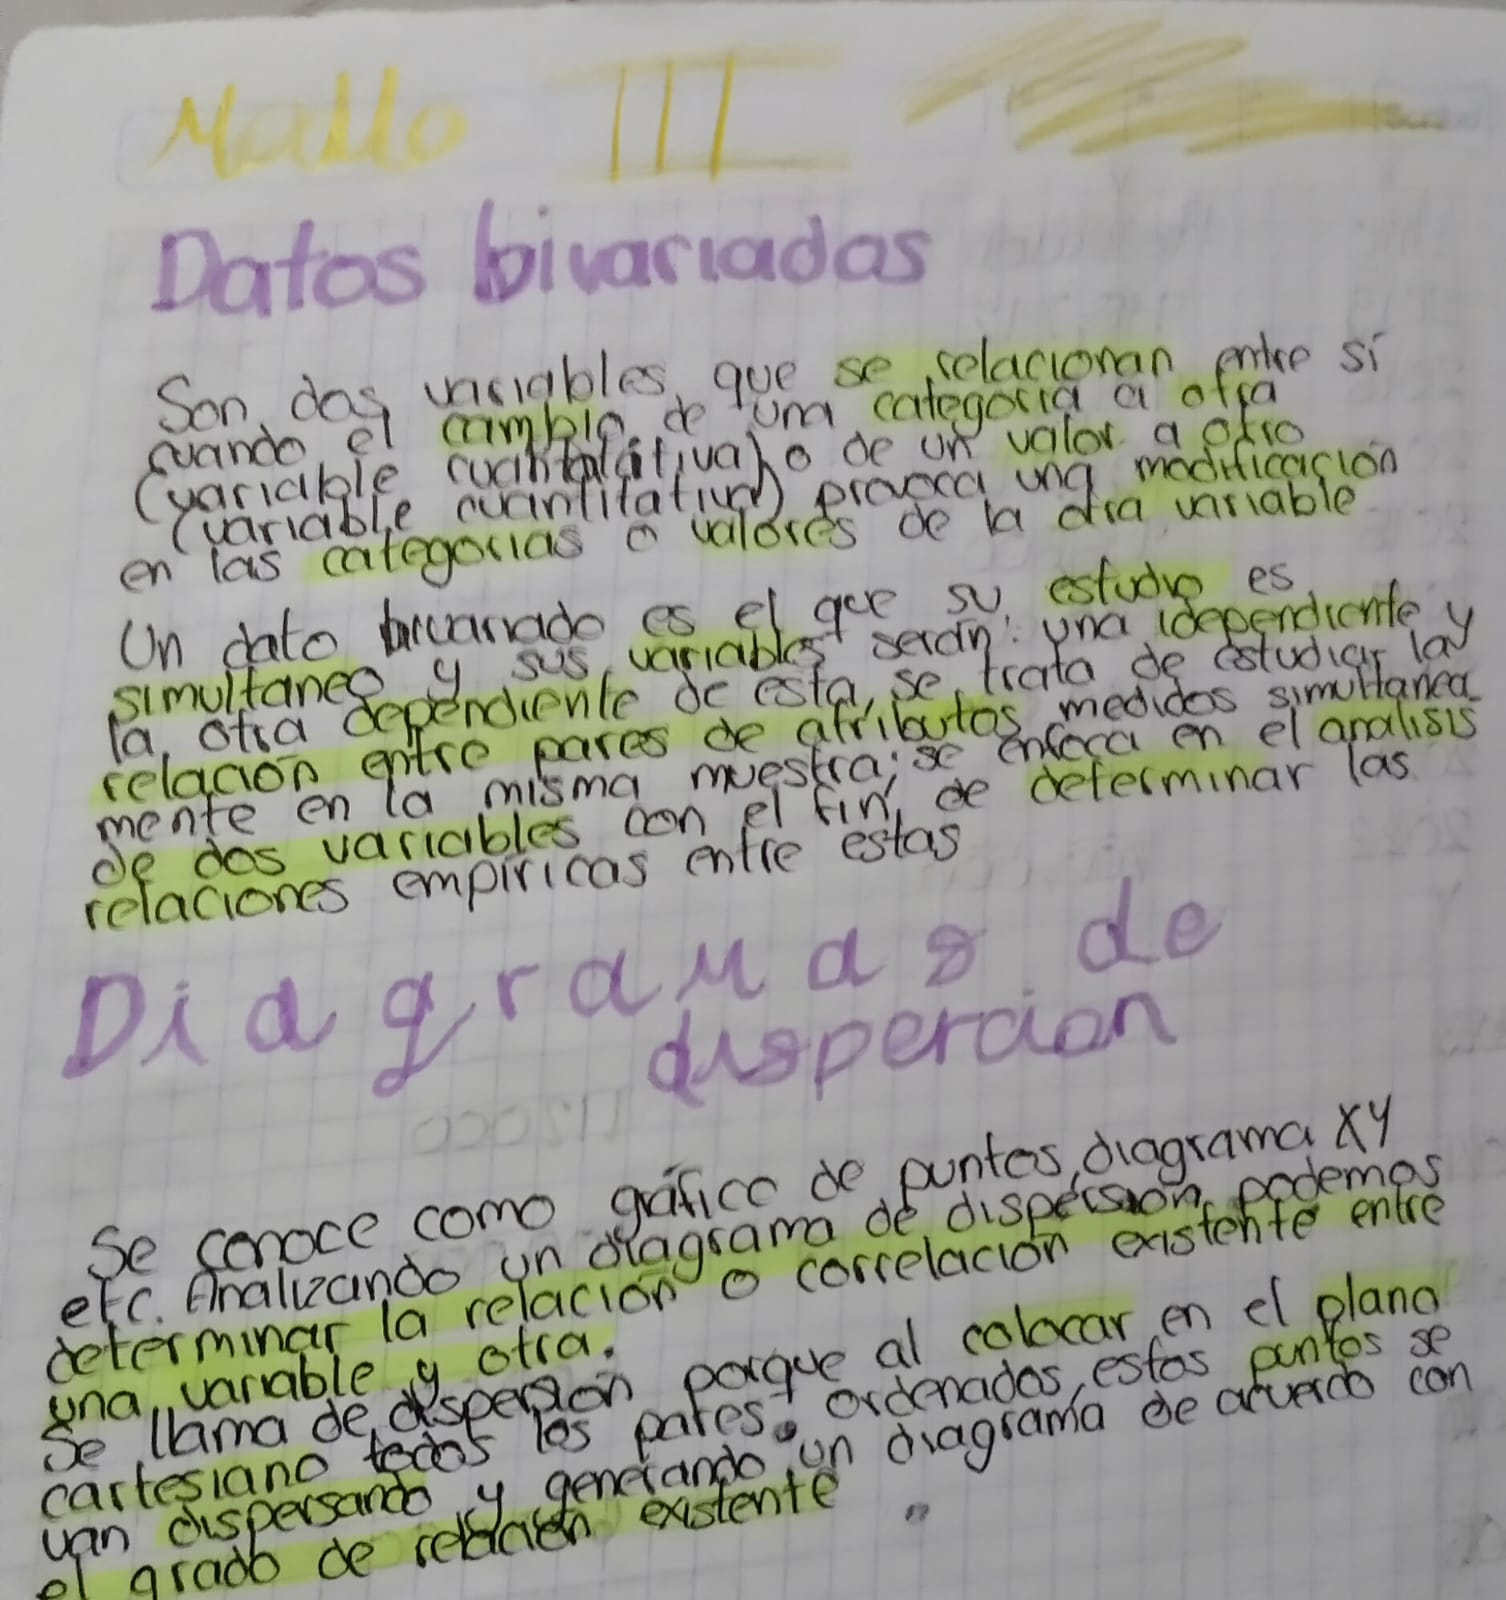 III
Datos bivariados
Son dos variables que se relacionan entre sí
cuando el cambio de una categoria a otra
(variable cuantalitiva) o de un valor a otro
(variable cuantitativa) provoca una modificacion
en las categorias o valores de la otra variable
Un dato bivariado es el que su estudio es
simultaneo y sus variables serán: una idependiente y
la otra dependiente de esta, se trata de estudiar la
relación entre pares de atributos medidos simultanea
mente en la misma muestra; se enfoca en el analisis
de dos variables con el fin de determinar las
relaciones empíricas entre estas
Diagramas de
dispercion
Se conoce como gráfico de puntos, diagrama XY
etc. Analizando un diagrama de dispersion podemos
determinar la relación o correlación existente entre
una variable y otra.
Se llama de dispersión porque al colocar en el plano
cartesiano todos los pares ordenados, estos puntos se
van dispersando y generando un diagrama de acuerdo con
el grado de relación existente